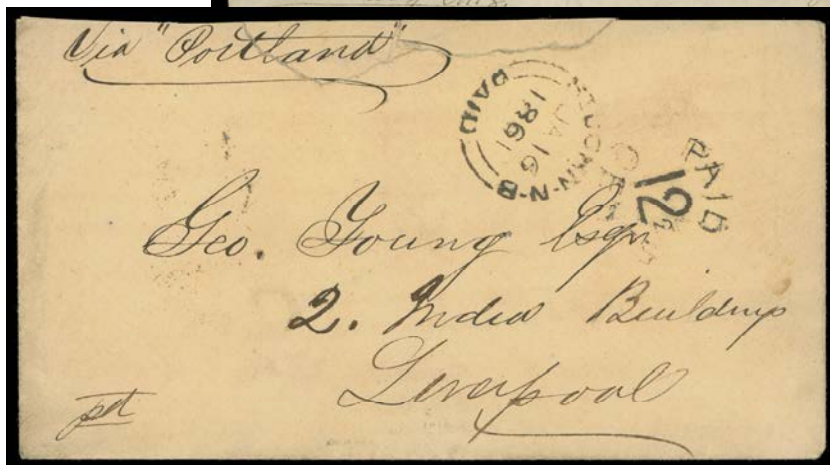 Via "Portland"
PAID ST JOHN-N-B
JA 16
1861
PAID
12
Geo. Young Esqr
2. India Buildings
Liverpool
pd